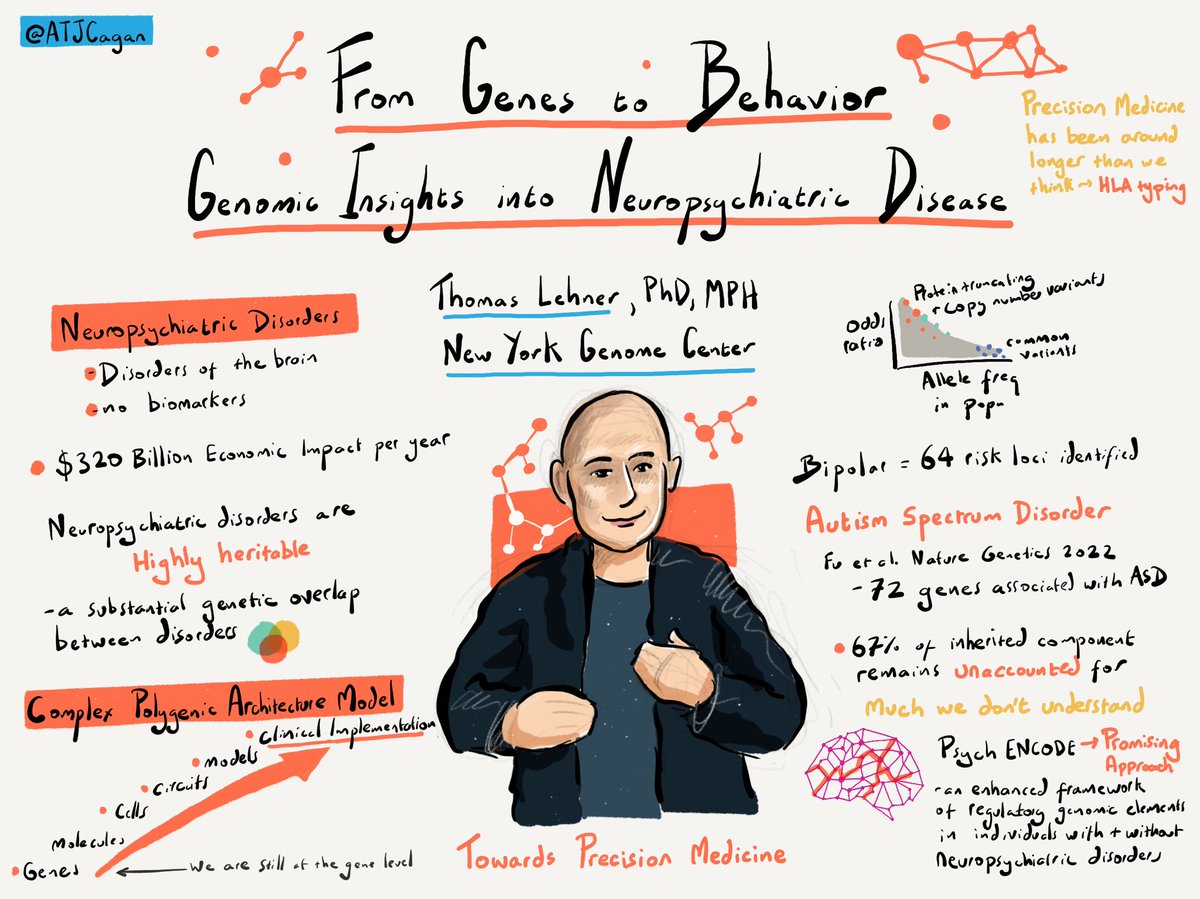 @ATJCagan
From Genes to Behavior
Genomic Insights into Neuropsychiatric Disease
Precision Medicine
has been around
longer than we
think → HLA typing
Thomas Lehner, PhD, MPH
New York Genome Center
Neuropsychiatric Disorders
- Disorders of the brain
- no biomarkers
$320 Billion Economic Impact per year
Neuropsychiatric disorders are
Highly heritable
- a substantial genetic overlap
between disorders
Complex Polygenic Architecture Model
Clinical Implementation
models
circuits
Cells
Molecules
Genes
← We are still at the gene level
Towards Precision Medicine
Protein truncating
+ copy number variants
odds
ratio
common
variants
Allele freq
in popn
Bipolar = 64 risk loci identified
Autism Spectrum Disorder
Fu et al. Nature Genetics 2022
- 72 genes associated with ASD
67% of inherited component
remains unaccounted for
Much we don't understand
Psych ENCODE → Promising
Approach
- an enhanced framework
of regulatory genomic elements
in individuals with + without
Neuropsychiatric disorders